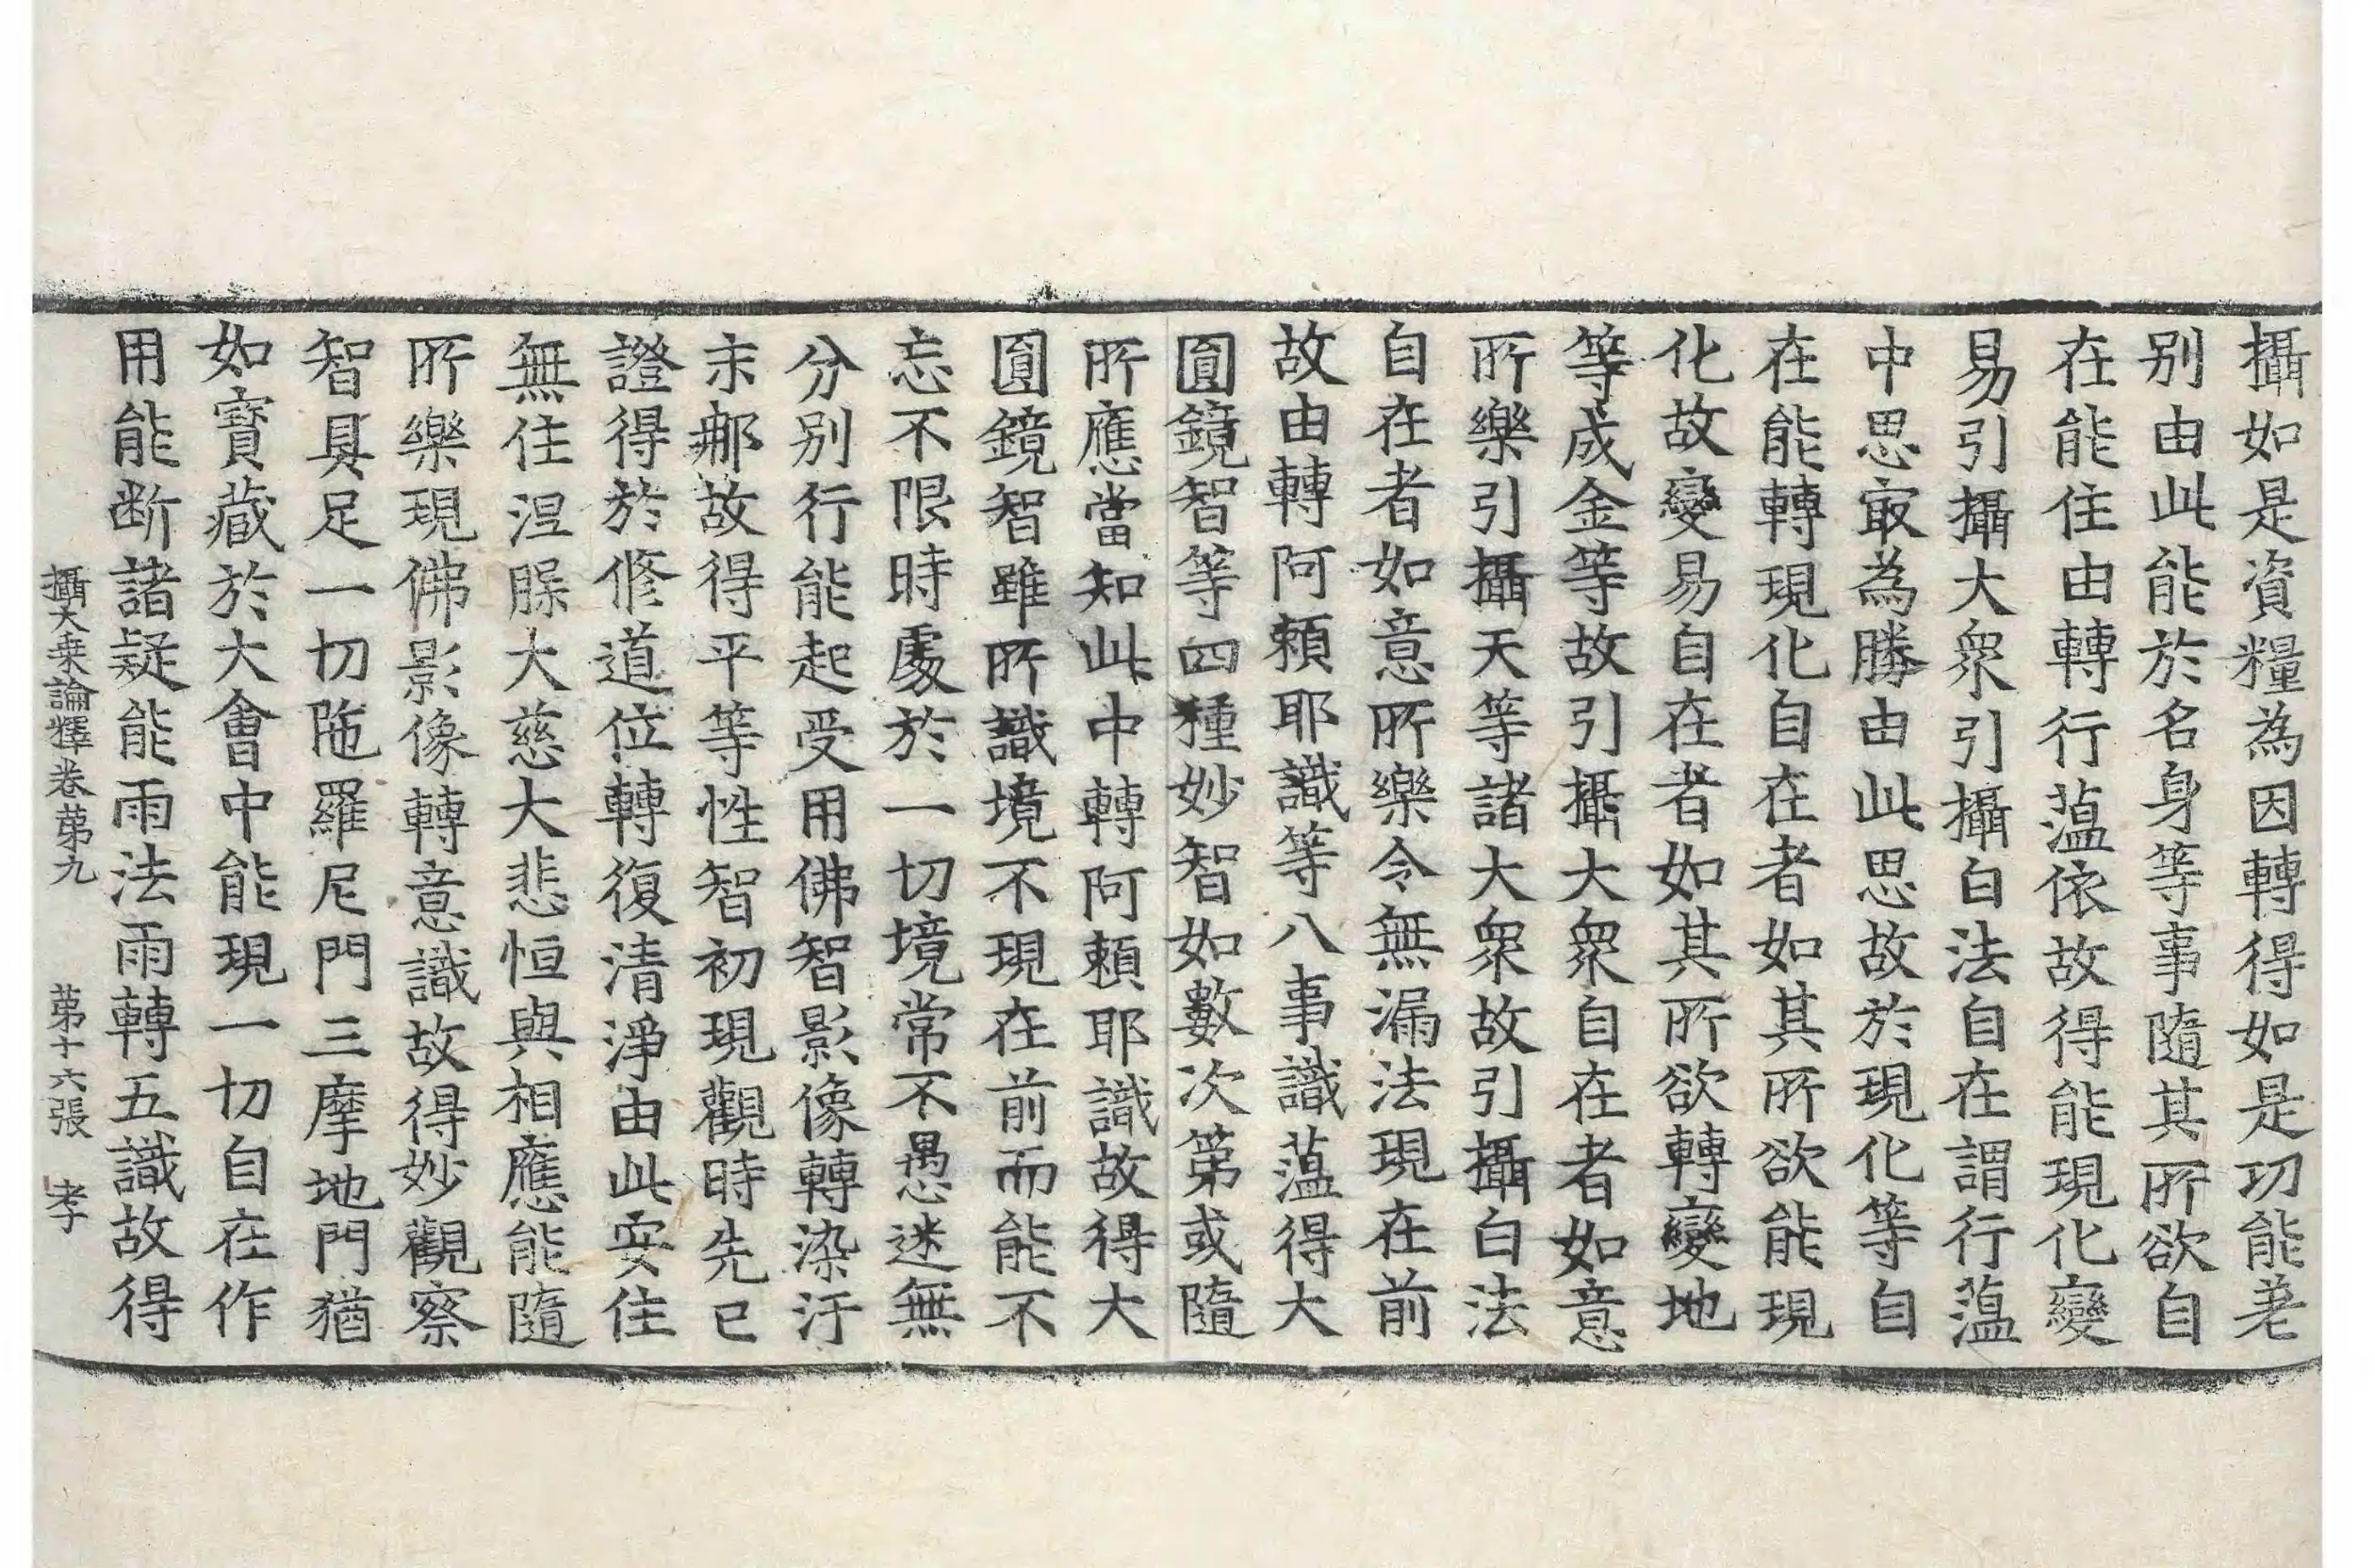 攝如是資糧為因轉得如是功能差
別由此能於名身等事隨其所欲自
在能住由轉行蘊依故得能現化變
易引攝大衆引攝白法自在謂行蘊
中思㝡為勝由此思故於現化等自
在能轉現化自在者如其所欲能現
化故變易自在者如其所欲轉變地
等成金等故引攝大衆自在者如意
所樂引攝天等諸大衆故引攝白法
自在者如意所樂令無漏法現在前
故由轉阿賴耶識等八事識蘊得大
圓鏡智等四種妙智如數次第或隨
所應當知此中轉阿賴耶識故得大
圓鏡智雖所識境不現在前而能不
忘不限時處於一切境常不愚迷無
分別行能起受用佛智影像轉染汙
末那故得平等性智初現觀時先已
證得於修道位轉復清淨由此安住
無住涅槃大慈大悲恒與相應能隨
所樂現佛影像轉意識故得妙觀察
智具足一切陁羅尼門三摩地門猶
如寶藏於大會中能現一切自在作
用能断諸疑能雨法雨轉五識故得
攝大乗論釋卷苐九　苐十六張　孝